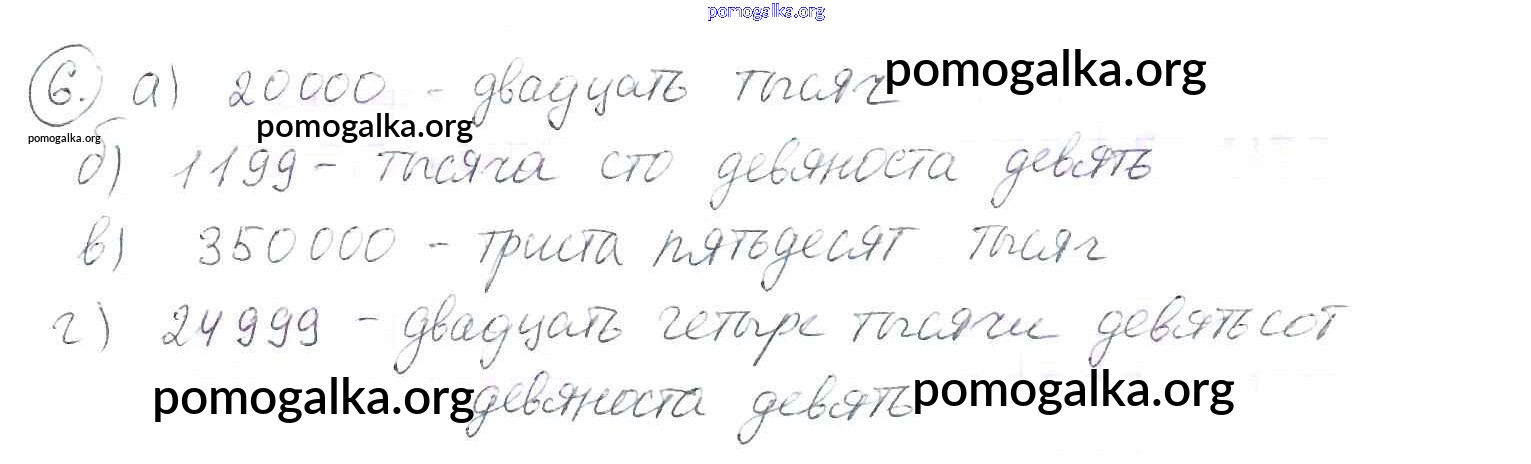 pomogalka.org
6. а) 20000 - двадцать тысяч pomogalka.org
pomogalka.org pomogalka.org
б) 1199 - тысяча сто девяноста девять
в) 350000 - триста пятьдесят тысяч
г) 24999 - двадцать четыре тысячи девятьсот
pomogalka.org девяноста девять pomogalka.org